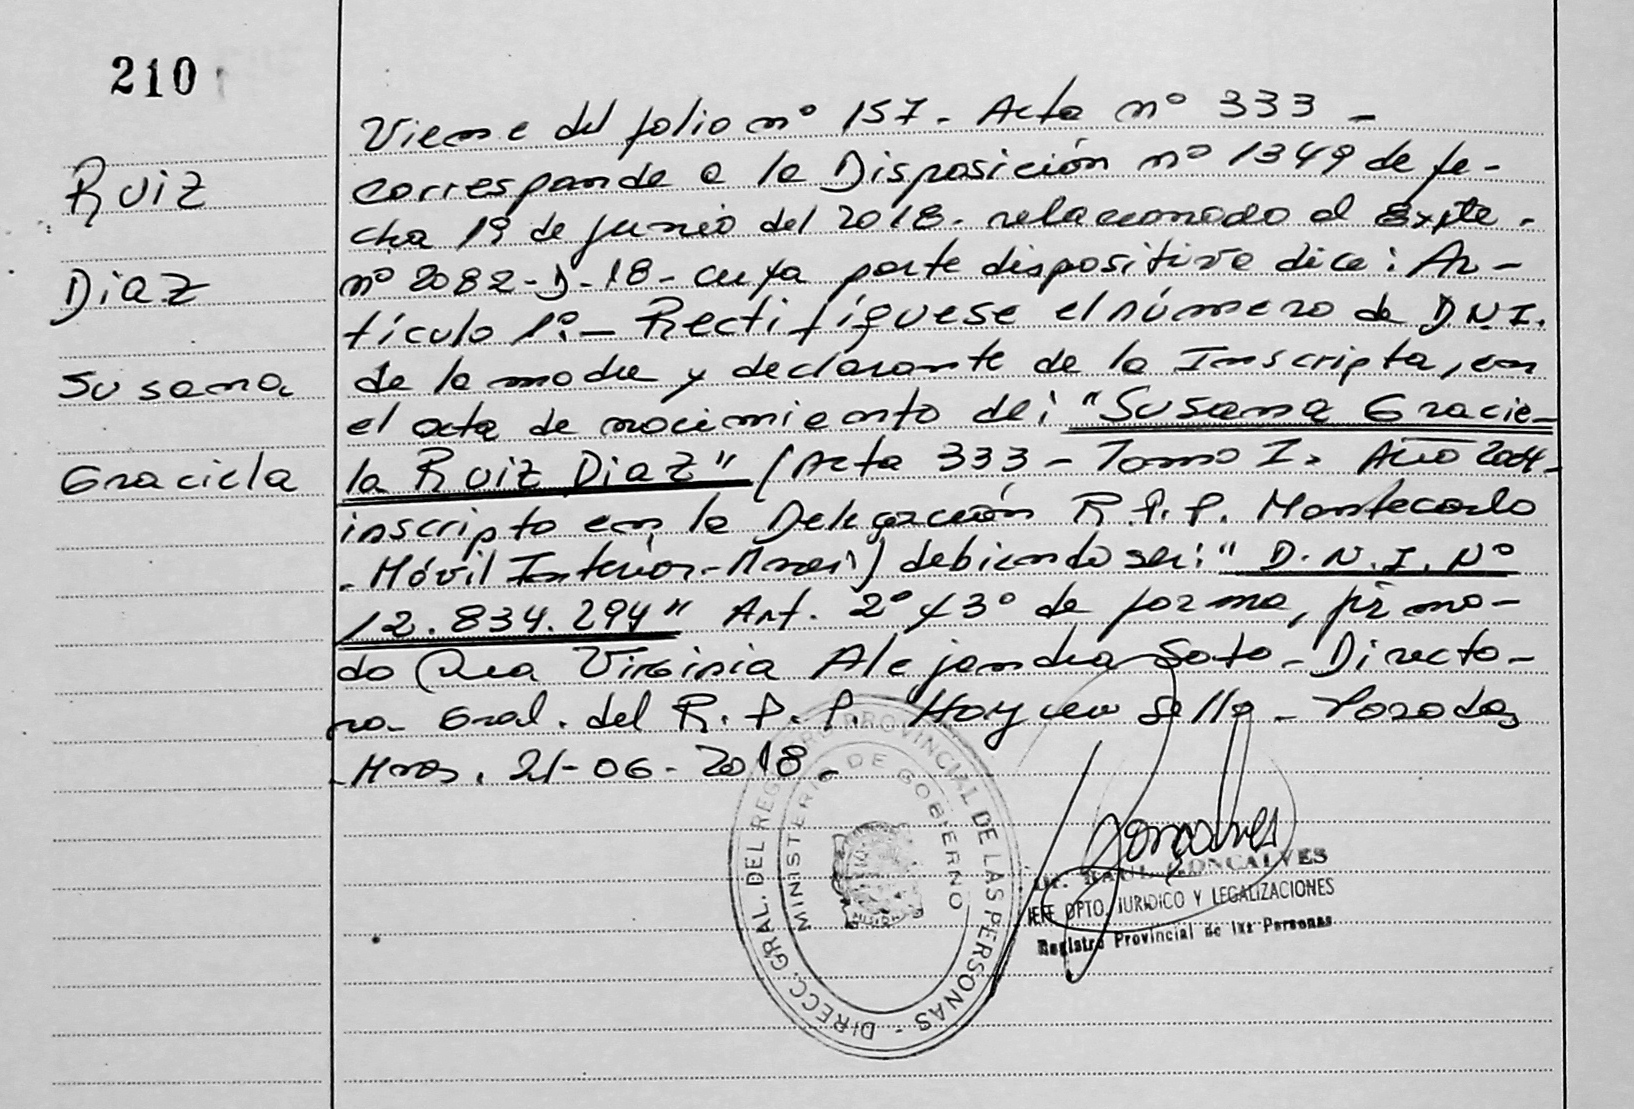 210
Ruiz
Diaz
Susana
Graciela
Viene del folio nº 157 - Acta nº 333 -
corresponde a la Disposición nº 1349 de fe-
cha 19 de junio del 2018 - relacionado al Expte.
nº 2082-D-18 - cuya parte dispositiva dice: Ar-
tículo 1º.- Rectifíquese el número de D.N.I.
de la madre y declarante de la Inscripta, en
el acta de nacimiento de: "Susana Gracie-
la Ruiz Diaz" (Acta 333 - Tomo I. Año 2004 -
inscripta en la Delegación R.P.P. Montecarlo
- Móvil Interior - Mnes) debiendo ser: "D.N.I. Nº
12.834.294" Art. 2º y 3º de forma, firma-
do Dra Virginia Alejandra Soto - Directo-
ra Gral. del R.P.P. Hay un sello - Posadas
- Mnes, 21-06-2018.
DIRECC. GRAL. DEL REGISTRO PROVINCIAL DE LAS PERSONAS -
MINISTERIO DE GOBIERNO
MISIONES
Lic. GONCALVES
JEFE DPTO. JURIDICO Y LEGALIZACIONES
Registro Provincial de las Personas